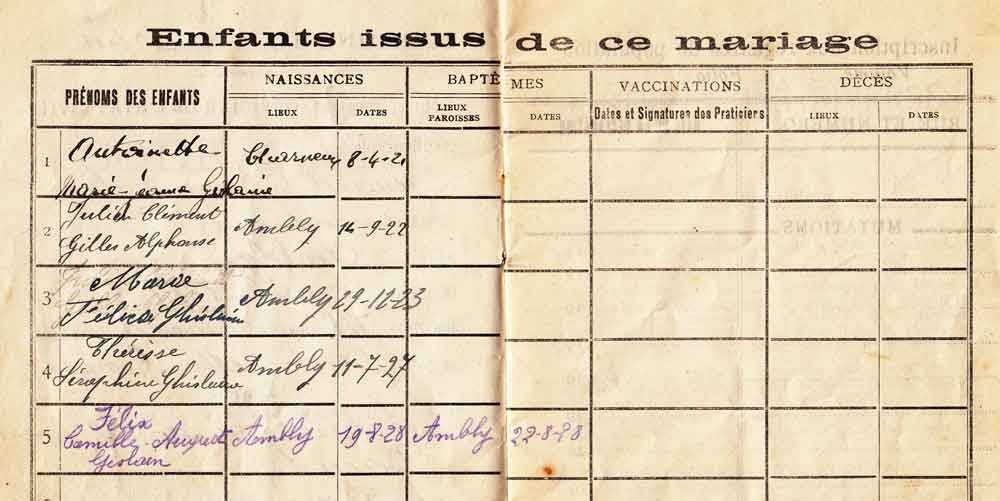 Enfants issus de ce mariage
PRÉNOMS DES ENFANTS
NAISSANCES
BAPTÊMES
VACCINATIONS
DÉCÈS
LIEUX
DATES
LIEUX
PAROISSES
DATES
Dates et Signatures des Praticiers
LIEUX
DATES
1 Antoinette Charneux 8-4-21
Marie-Jeanne Ghislaine
Julien Clément
2 Ambly 14-9-22
Gilles Alphonse
Marie
3 Ambly 29-12-23
Félicie Ghislaine
Thérèsse
4 Ambly 11-7-27
Séraphine Ghislaine
Félix
5 Camille-August Ambly 19-8-28 Ambly 22-8-28
Gislain
MUTATIONS